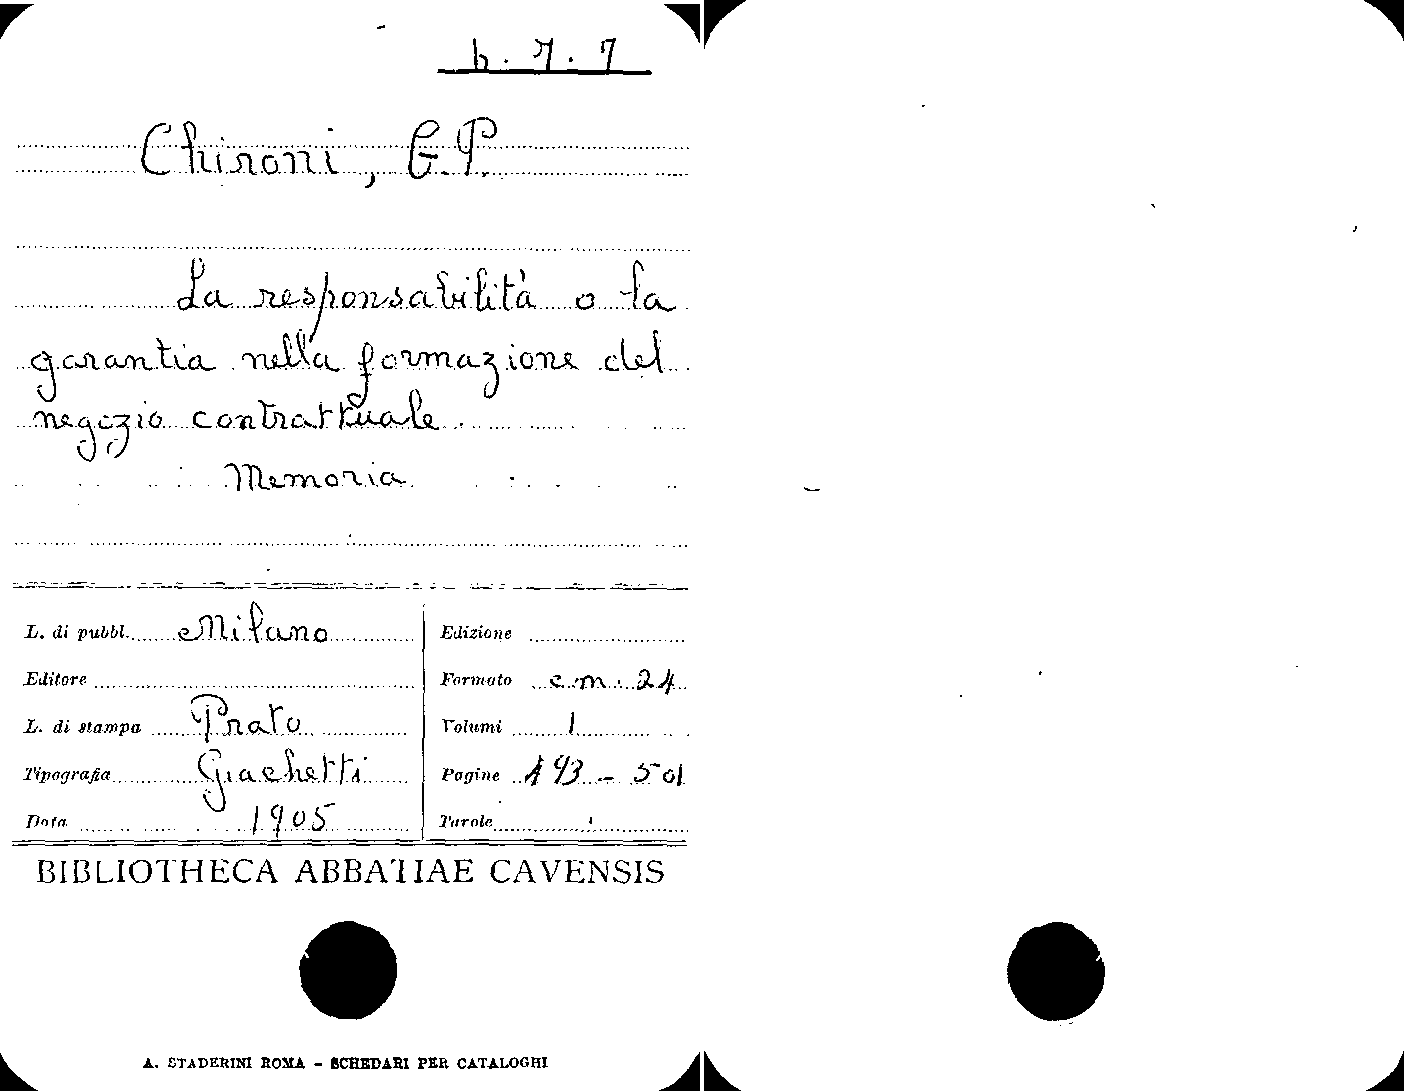 h. 7. 7
Chironi, G.P.
La responsabilità o la
garantia nella formazione del
negozio contrattuale.
Memoria
L. di pubbl. Milano
Editore
L. di stampa Prato
Tipografia Giachetti
Data 1905
Edizione
Formato cm. 24
Volumi 1
Pagine 493 - 501
Tavole
BIBLIOTHECA ABBATIAE CAVENSIS
A. STADERINI ROMA - SCHEDARI PER CATALOGHI